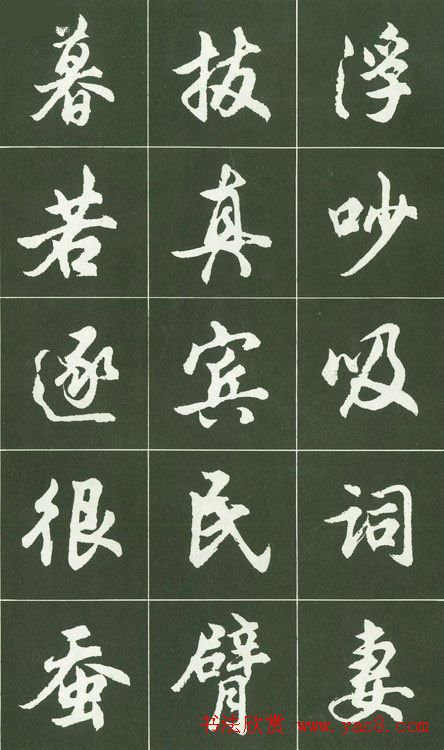 浮吵吸词妻
拔真宾民臂
暮若逐很蚕
书法欣赏 www.yac8.com